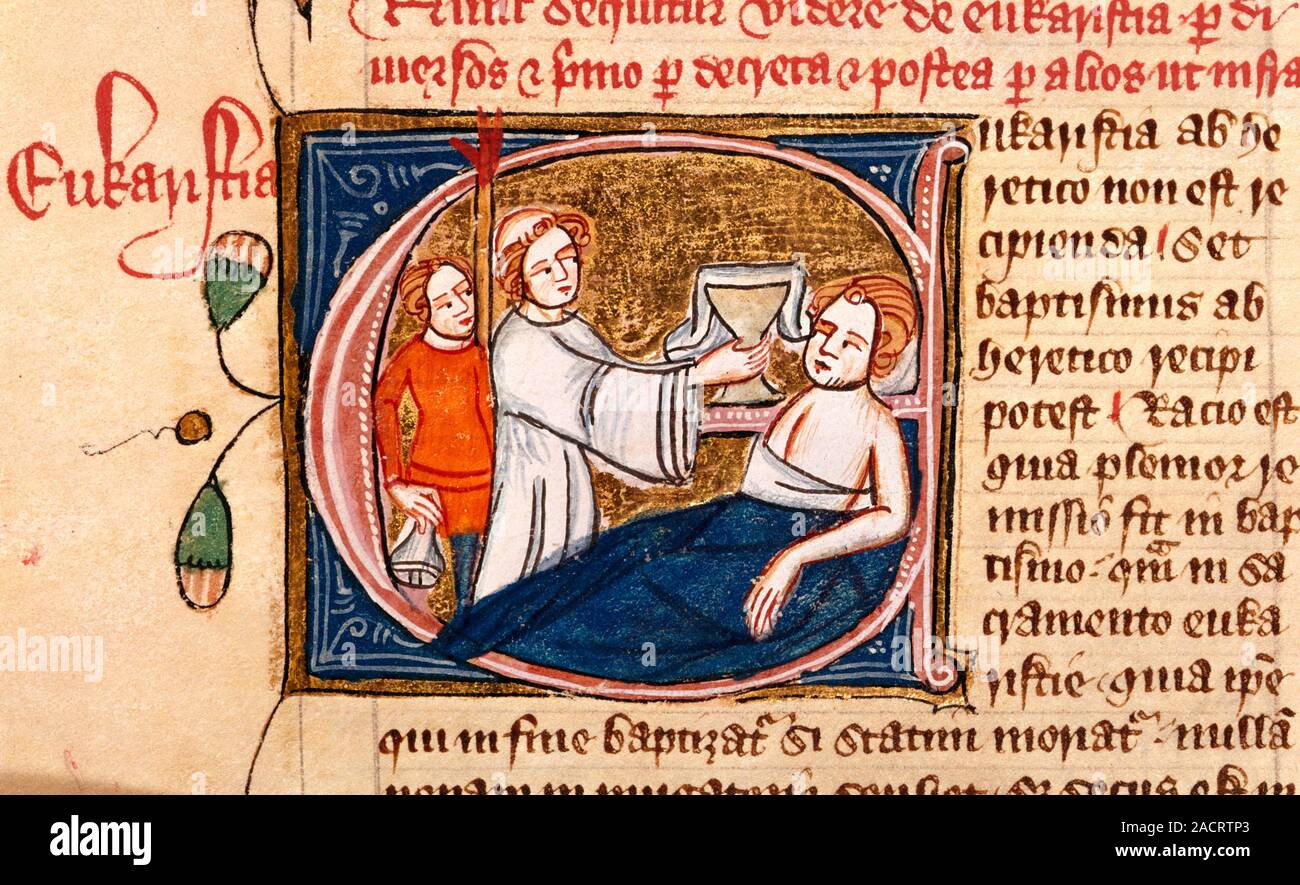 videre de eukaristia p di
uersos & pmo p decreta & postea p alios ut infra
Eukaristia
ukaristia ab he
retico non est re
cipienda Set
baptismus ab
heretico recipi
potest Racio est
quia plenior re
missio fit in bap
tismo qm in sa
cramento euka
ristie quia ipe
qui in fine baptizat si statim moriat nulla
a
alamy
Image ID: 2ACRTP3
www.alamy.com